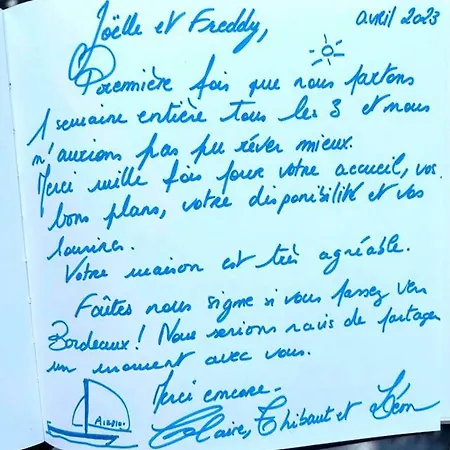 Joëlle et Freddy,
avril 2023
Première fois que nous partons
1 semaine entière tous les 3 et nous
n'aurions pas pu rêver mieux.
Merci mille fois pour votre accueil, vos
bons plans, votre disponibilité et vos
sourires.
Votre maison est très agréable.
Faîtes nous signe si vous passez vers
Bordeaux! Nous serions ravis de partager
un moment avec vous.
Merci encore-
Claire, Thibaut et Léon